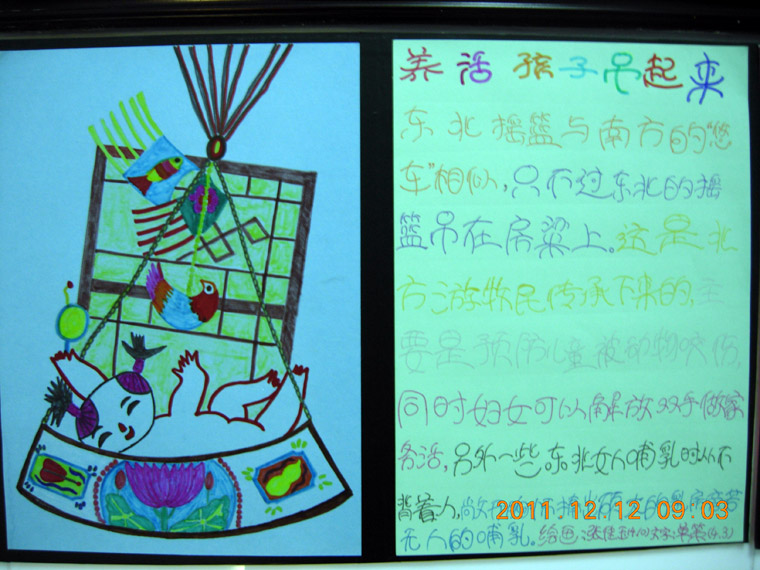 养活孩子吊起来
东北摇篮与南方的"悠
车"相似，只不过东北的摇
篮吊在房梁上。这是北
方游牧民传承下来的，主
要是预防儿童被动物咬伤，
同时妇女可以解放双手做家
务活，另外一些东北女人哺乳时从不
背着人，的乳房旁若
无人的哺乳。绘画：文字：
2011 12 12 09:03